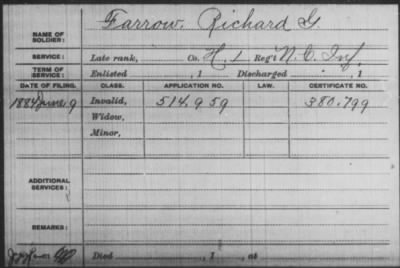 Farrow, Richard G.
NAME OF SOLDIER:
SERVICE: Late rank, Co. H, 1 Reg't N.C. Inf.
TERM OF SERVICE: Enlisted , 1 Discharged , 1
DATE OF FILING. CLASS. APPLICATION NO. LAW. CERTIFICATE NO.
1884 June 9 Invalid, 514.959 380.799
Widow,
Minor,
ADDITIONAL SERVICES:
REMARKS:
Died , 1 , at